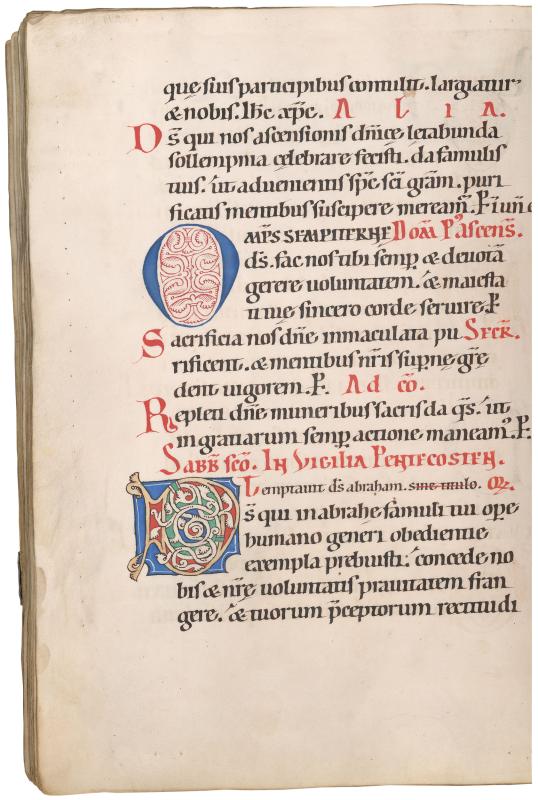 que suis participibus contulit. largiatur
& nobis. Ihc xpc. ALIA.
Ds̄ qui nos ascensionis dn̄ice letabunda
sollempnia celebrare fecisti. da famulis
tuis. ut aduenientis sp̄c sc̄i grām. puri
ficatis mentibus suscipere meream̄. P
OMPS SEMPITERNE Dom̄ Pꝰ Ascens̄.
ds̄. fac nos tibi semp̱ & deuotā
gerere uoluntatem. & maiesta
ti tue sincero corde seruire. P
Sacrificia nos dn̄e immaculata pu Secr̄.
rificent. & mentibus nr̄is sup̱ne grē
dent uigorem. P. Ad cō.
Repleti dn̄e muneribus sacris da qs̄. ut
in gratiarum semp̱ actione maneamꝰ. P.
Sabb̄ sc̄o. In Vigilia Pentecosten.
Temptauit ds̄ abraham. sine titulo. Or̄.
Ds̄ qui in abrahe famuli tui ope
humano generi obedientie
exempla prebuisti. concede no
bis & nr̄e uoluntatis prauitatem fran
gere. & tuorum p̄ceptorum rectitudi